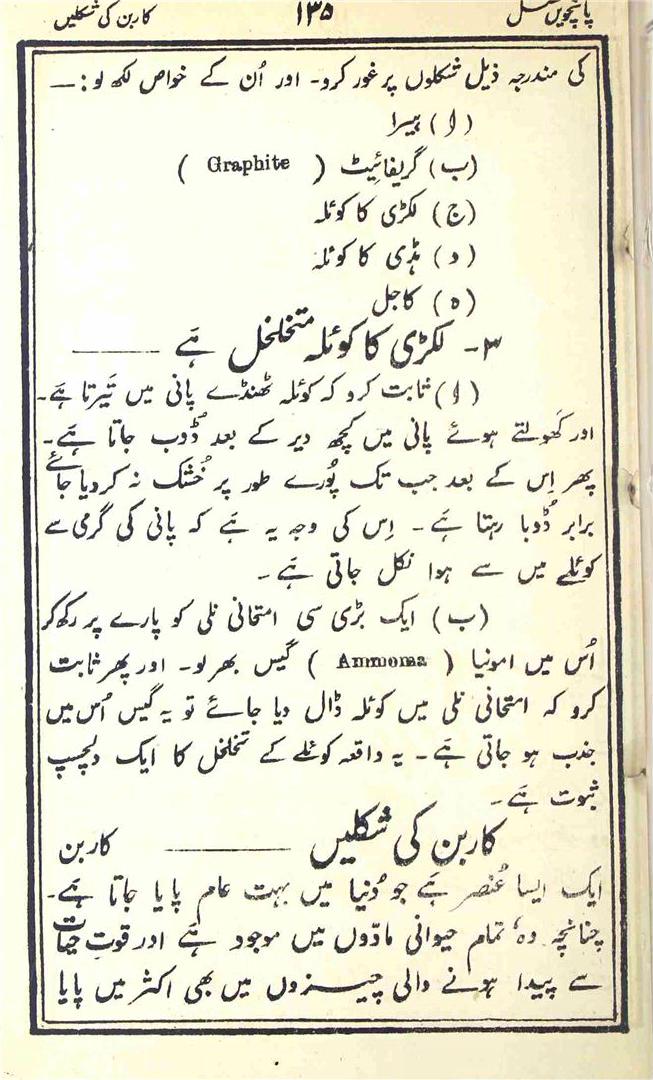 پانچویں فصل ۱۳۵ کاربن کی شکلیں
کی مندرجہ ذیل شکلوں پر غور کرو۔ اور اُن کے خواص لکھ لو:—
(ا) ہیرا
(ب) گریفائیٹ (Graphite)
(ج) لکڑی کا کوئلہ
(د) ہڈی کا کوئلہ
(ہ) کاجل
۳۔ لکڑی کا کوئلہ متخلخل ہَے ———
(ا) ثابت کرو کہ کوئلہ ٹھنڈے پانی میں تَیرتا ہَے۔
اور کھَولتے ہوئے پانی میں کچھ دیر کے بعد ڈُوب جاتا ہَے۔
پھر اِس کے بعد جب تک پُورے طور پر خُشک نہ کر دیا جائے
برابر ڈُوبا رہتا ہَے۔ اِس کی وجہ یہ ہَے کہ پانی کی گرمی سے
کوئلے میں سے ہوا نکل جاتی ہَے۔
(ب) ایک بڑی سی امتحانی نلی کو پارے پر رکھ کر
اُس میں امونیا (Ammonia) گیس بھر لو۔ اور پھر ثابت
کرو کہ امتحانی نلی میں کوئلہ ڈال دیا جائے تو یہ گیس اُس میں
جذب ہو جاتی ہَے۔ یہ واقعہ کوئلے کے تخلخل کا ایک دلچسپ
ثبوت ہَے۔
کاربن کی شکلیں ——— کاربن
ایک ایسا عُنصر ہَے جو دُنیا میں بہت عام پایا جاتا ہَے۔
چنانچہ وہ تمام حیوانی مادّوں میں موجود ہَے اور قوتِ حیات
سے پیدا ہونے والی چیزوں میں بھی اکثر میں پایا